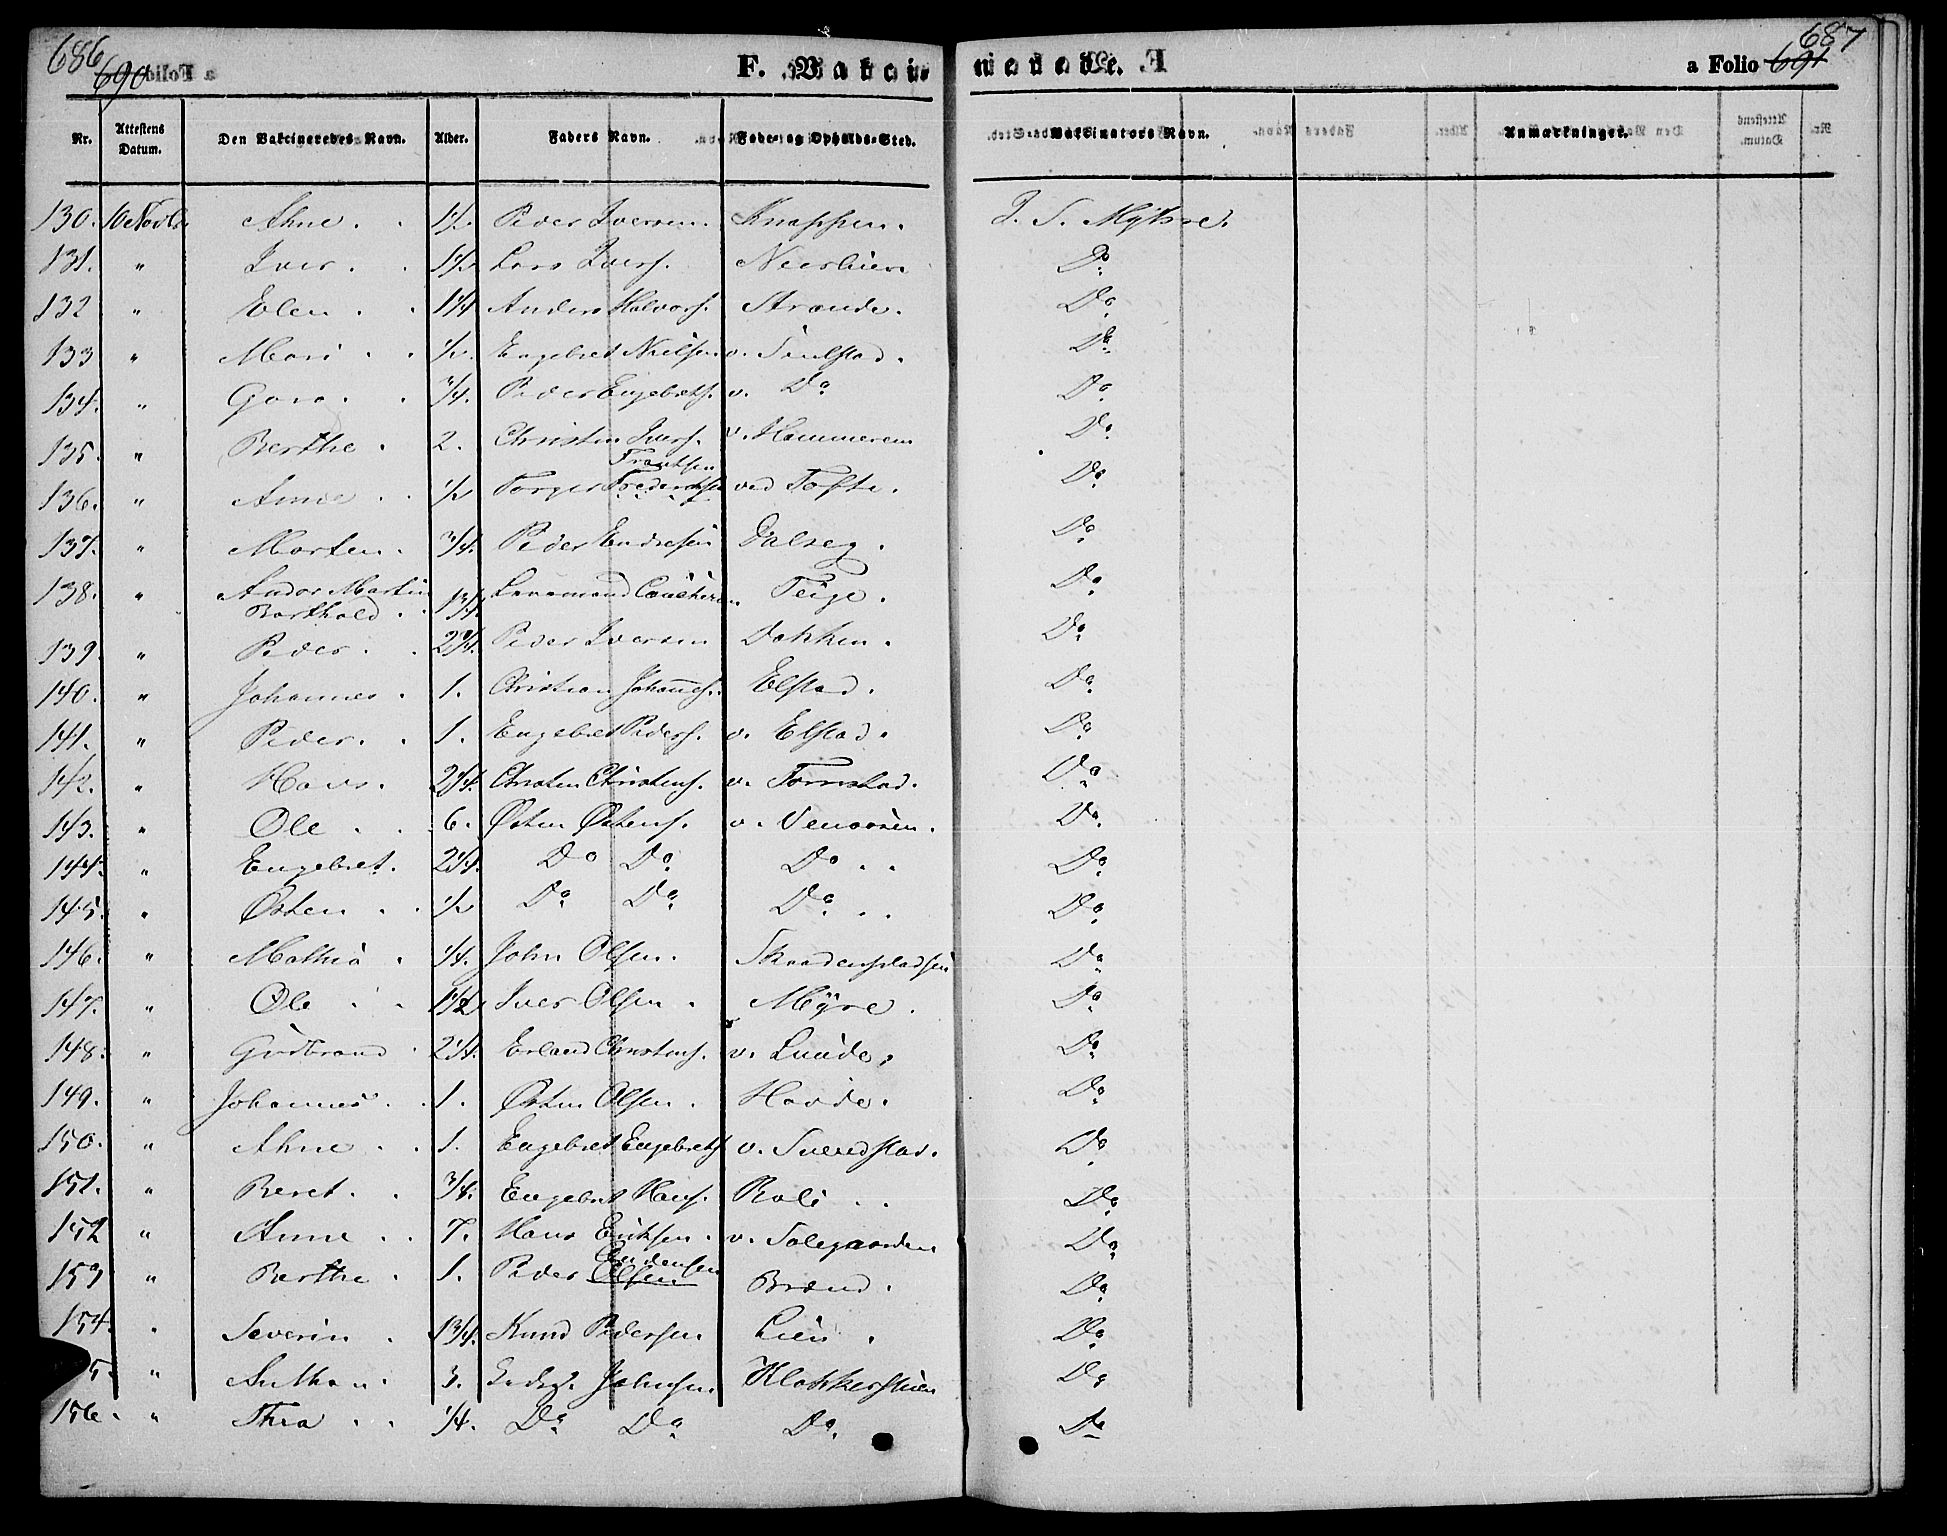 686 690
F. Vakcinerede.
a Folio 691 687
Nr. Attestens Datum. Den Vakcineredes Navn. Alder. Faders Navn. Føde- og Opholds-Sted. Vakcinators Navn. Anmærkninger.
130. 10 Novbr. Ahne. 1/2. Peder Iversen. Knappen. J. S. Mythre.
131. " Iver. 1/2 Lars Ivers. Do.
132 " Elen. 1/4 Anders Halvors. Strande. Do.
133 " Mari. 1/2. Engebret Nielsen v. Do.
134. " Goro. 3/4. Peder Engebrets. v. Do Do.
135. " Berthe. 2. Christen Ivers. v. Hammeren Do.
Frantsen
136. " Anne. 1/2 Torger Frederiksen ved Tofte. Do.
137. " Morten. 3/4. Peder Endresen Dalseg. Do.
138. " Andor Martin Barthold. 1 3/4. Teige. Do.
139. " Peder. 2 3/4. Peder Iversen Dokken. Do.
140. " Johannes. 1. Christian Johannes. Elstad. Do.
141. " Peder. 1. Engebret Peders. v. Elstad. Do.
142. " Hans. 2 1/4. Christen Christens. v. Tornstad. Do.
143. " Ole. 6. Østen Østens. v. Do.
144. " Engebret. 2 1/4. Do Do. Do.. Do.
145. " Østen. 1/2 Do. Do. Do.. Do.
146. " Mathia. 1/4. John Olsen. Skaadenpladsen Do.
147. " Ole. 1 1/2. Iver Olsen. Myre. Do.
148. " Gudbrand. 2 1/4. Erland Christens. v. Lunde. Do.
149. " Johannes. 1. Østen Olsen. Hovde. Do.
150. " Ahne. 1. Engebret Engebrets v. Sveedstad. Do.
151. " Beret. 3/4. Engebret Hans. Roli.. Do.
152 " Anne. 7. Hans Eriksen. v. Solegaarden Do.
153 " Berthe. 1. Peder Olsen Endensen Brænd. Do.
154. " Severin. 1 3/4. Knud Pedersen Lien. Do.
5. " Anthon. 3. Johnsen. Klokkerstuen Do
156. " Thea. 1/4. Do. Do. Do. Do